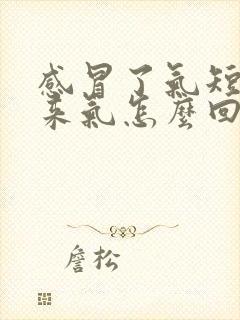 感冒了氣短
來氣怎麼回
詹松